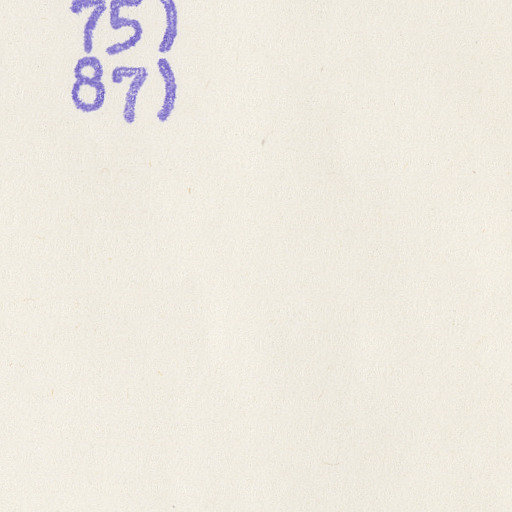 75)
87)